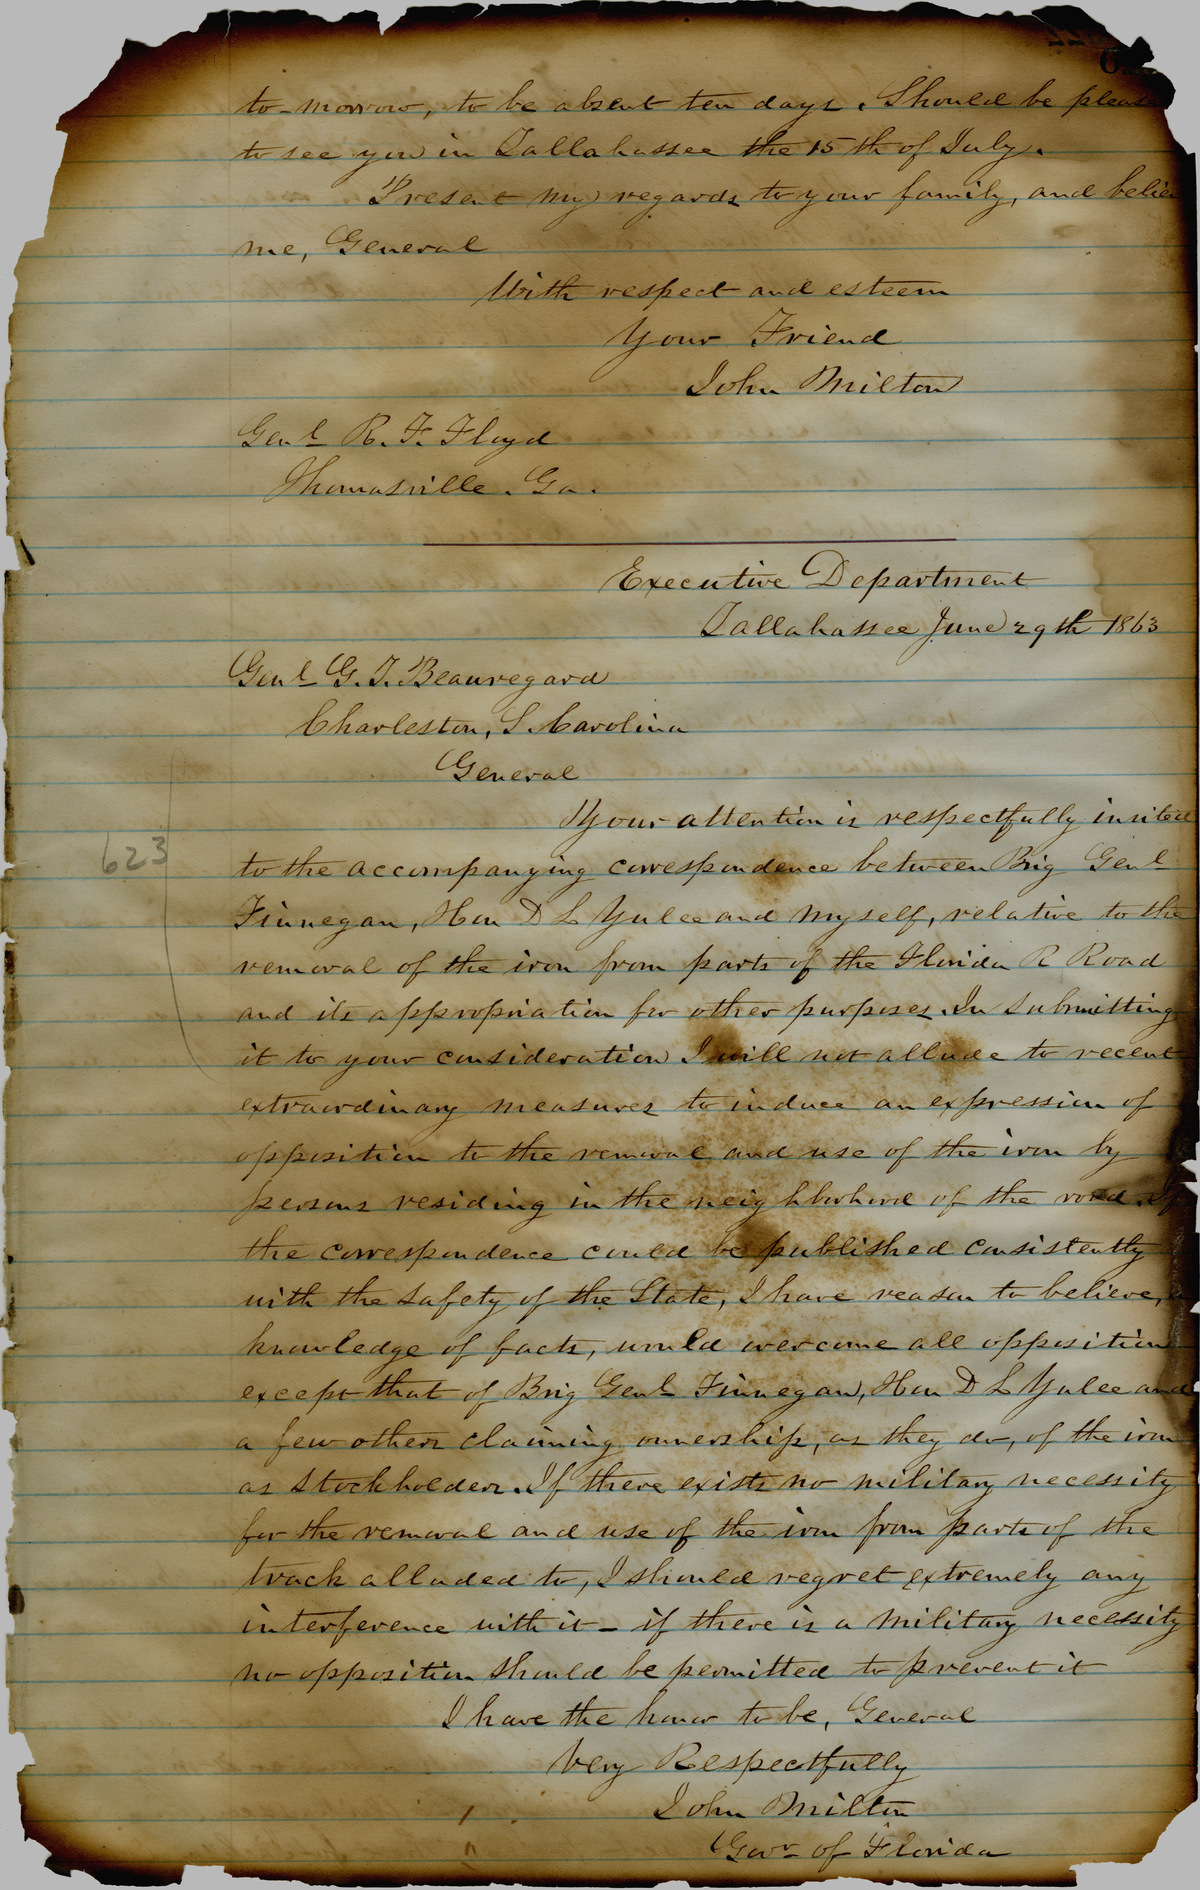 to-morrow, to be absent ten days. Should be please
to see you in Tallahassee the 15th of July.
Present my regards to your family, and belie
me, General
With respect and esteem
Your Friend
John Milton
Genl R. F. Floyd
Thomasville. Ga.
Executive Department
Tallahassee June 29th 1863
Genl G. T. Beauregard
Charleston, S. Carolina
General
Your attention is respectfully invited
623
to the accompanying correspondence between Brig Genl
Finnegan, Hon D L Yulee and myself, relative to the
removal of the iron from parts of the Florida R Road
and its appropriation for other purposes. In submitting
it to your consideration I will not allude to recent
extraordinary measures to induce an expression of
opposition to the removal and use of the iron by
persons residing in the neighborhood of the road. If
the correspondence could be published consistently
with the safety of the State, I have reason to believe,
knowledge of facts, would overcome all opposition
except that of Brig Genl Finnegan, Hon D L Yulee and
a few others claiming ownership, as they do, of the iron
as Stockholders. If there exists no military necessity
for the removal and use of the iron from parts of the
track alluded to, I should regret extremely any
interference with it - if there is a military necessity
no opposition should be permitted to prevent it
I have the honor to be, General
Very Respectfully
John Milton
Govr of Florida